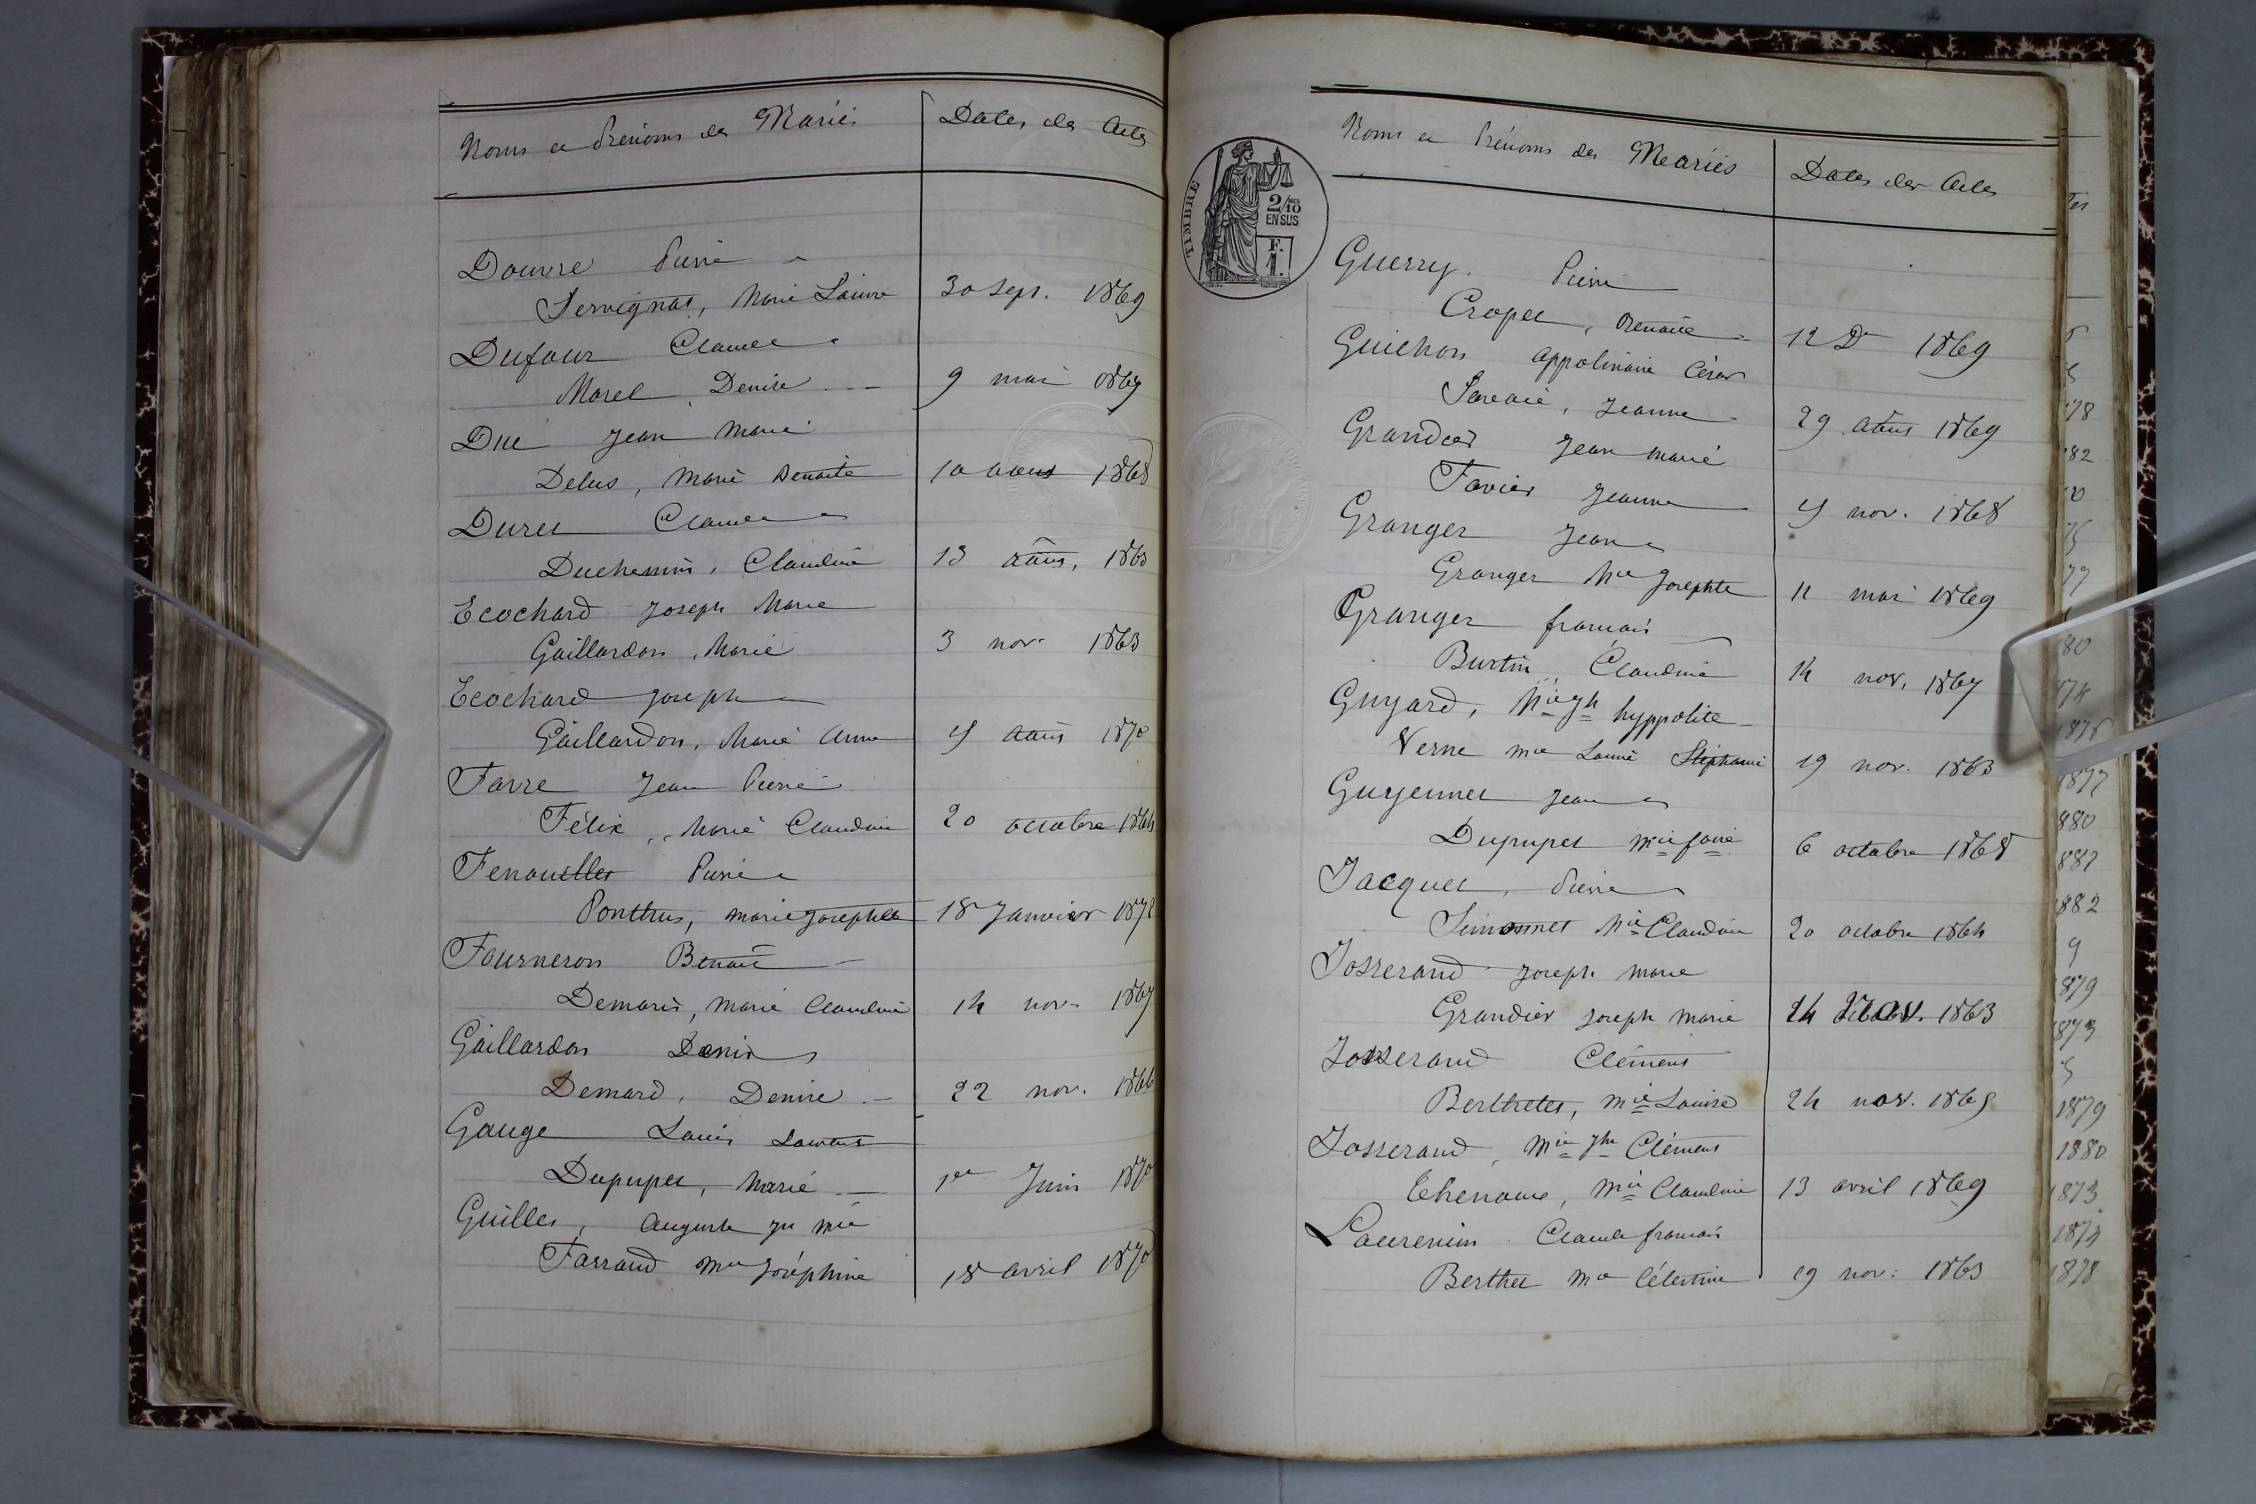 Noms et Prénoms des Mariés Dates des Actes
Douvre Pierre
Servignat, Marie Louise 30 Sept. 1869
Dufour Claude
Morel, Denise 9 mai 1867
Duc Jean Marie
Delus, Marie Benoite 10 aout 1868
Duret Claude
Duchemin, Claudine 13 août, 1863
Ecochard Joseph Marie
Gaillardon, Marie 3 nov. 1863
Ecochard Joseph
Gaillardon, Marie Anne 4 août 1870
Favre Jean Pierre
Félix, Marie Claudine 20 octobre 1864
Fenouillet Pierre
Ponthus, marie Josephte 18 Janvier
Fourneron Benoit
Demaris, Marie Claudine 14 nov. 1867
Gaillardon Denis
Demard, Denise 22 nov. 1866
Gauge Louis Laurent
Dupupet, Marie 1er Juin 1870
Guillet, Auguste Jn Mie
Farraud Mie Joséphine 18 avril 1870
TIMBRE
2/10
EN SUS
F.
1.
Noms et Prénoms des Mariés Dates des Actes
Guerry Pierre
Cropet, Benoite 12 Dre 1869
Guichon Appolinaire César
Savoie, Jeanne 29 août 1869
Grandier Jean Marie
Favier Jeanne 4 nov. 1868
Granger Jean
Granger Mie Josephte 11 mai 1869
Granger françois
Burtin, Claudine 14 nov. 1867
Guyard, Mie Jh hyppolite
Verne mie Louise Stéphanie 19 nov. 1863
Guyennet Jean
Dupupet mie 6 octobre 1868
Jacquet, Pierre
Simonnet Mie Claudine 20 octobre 1864
Josserand Joseph marie
Grandier Joseph Marie 24 Nov. 1863
Josserand Clément
Berthelet, Mie Louise 24 nov. 1869
Josserand, Mie Jh Clément
Thenoux, Mie Claudine 13 avril 1869
Laurencin Claude françois
Berthet Mie Célestine 19 nov: 1863
78
82
77
80
1876
1877
880
882
9
879
1879
1880
1873
1874
1878